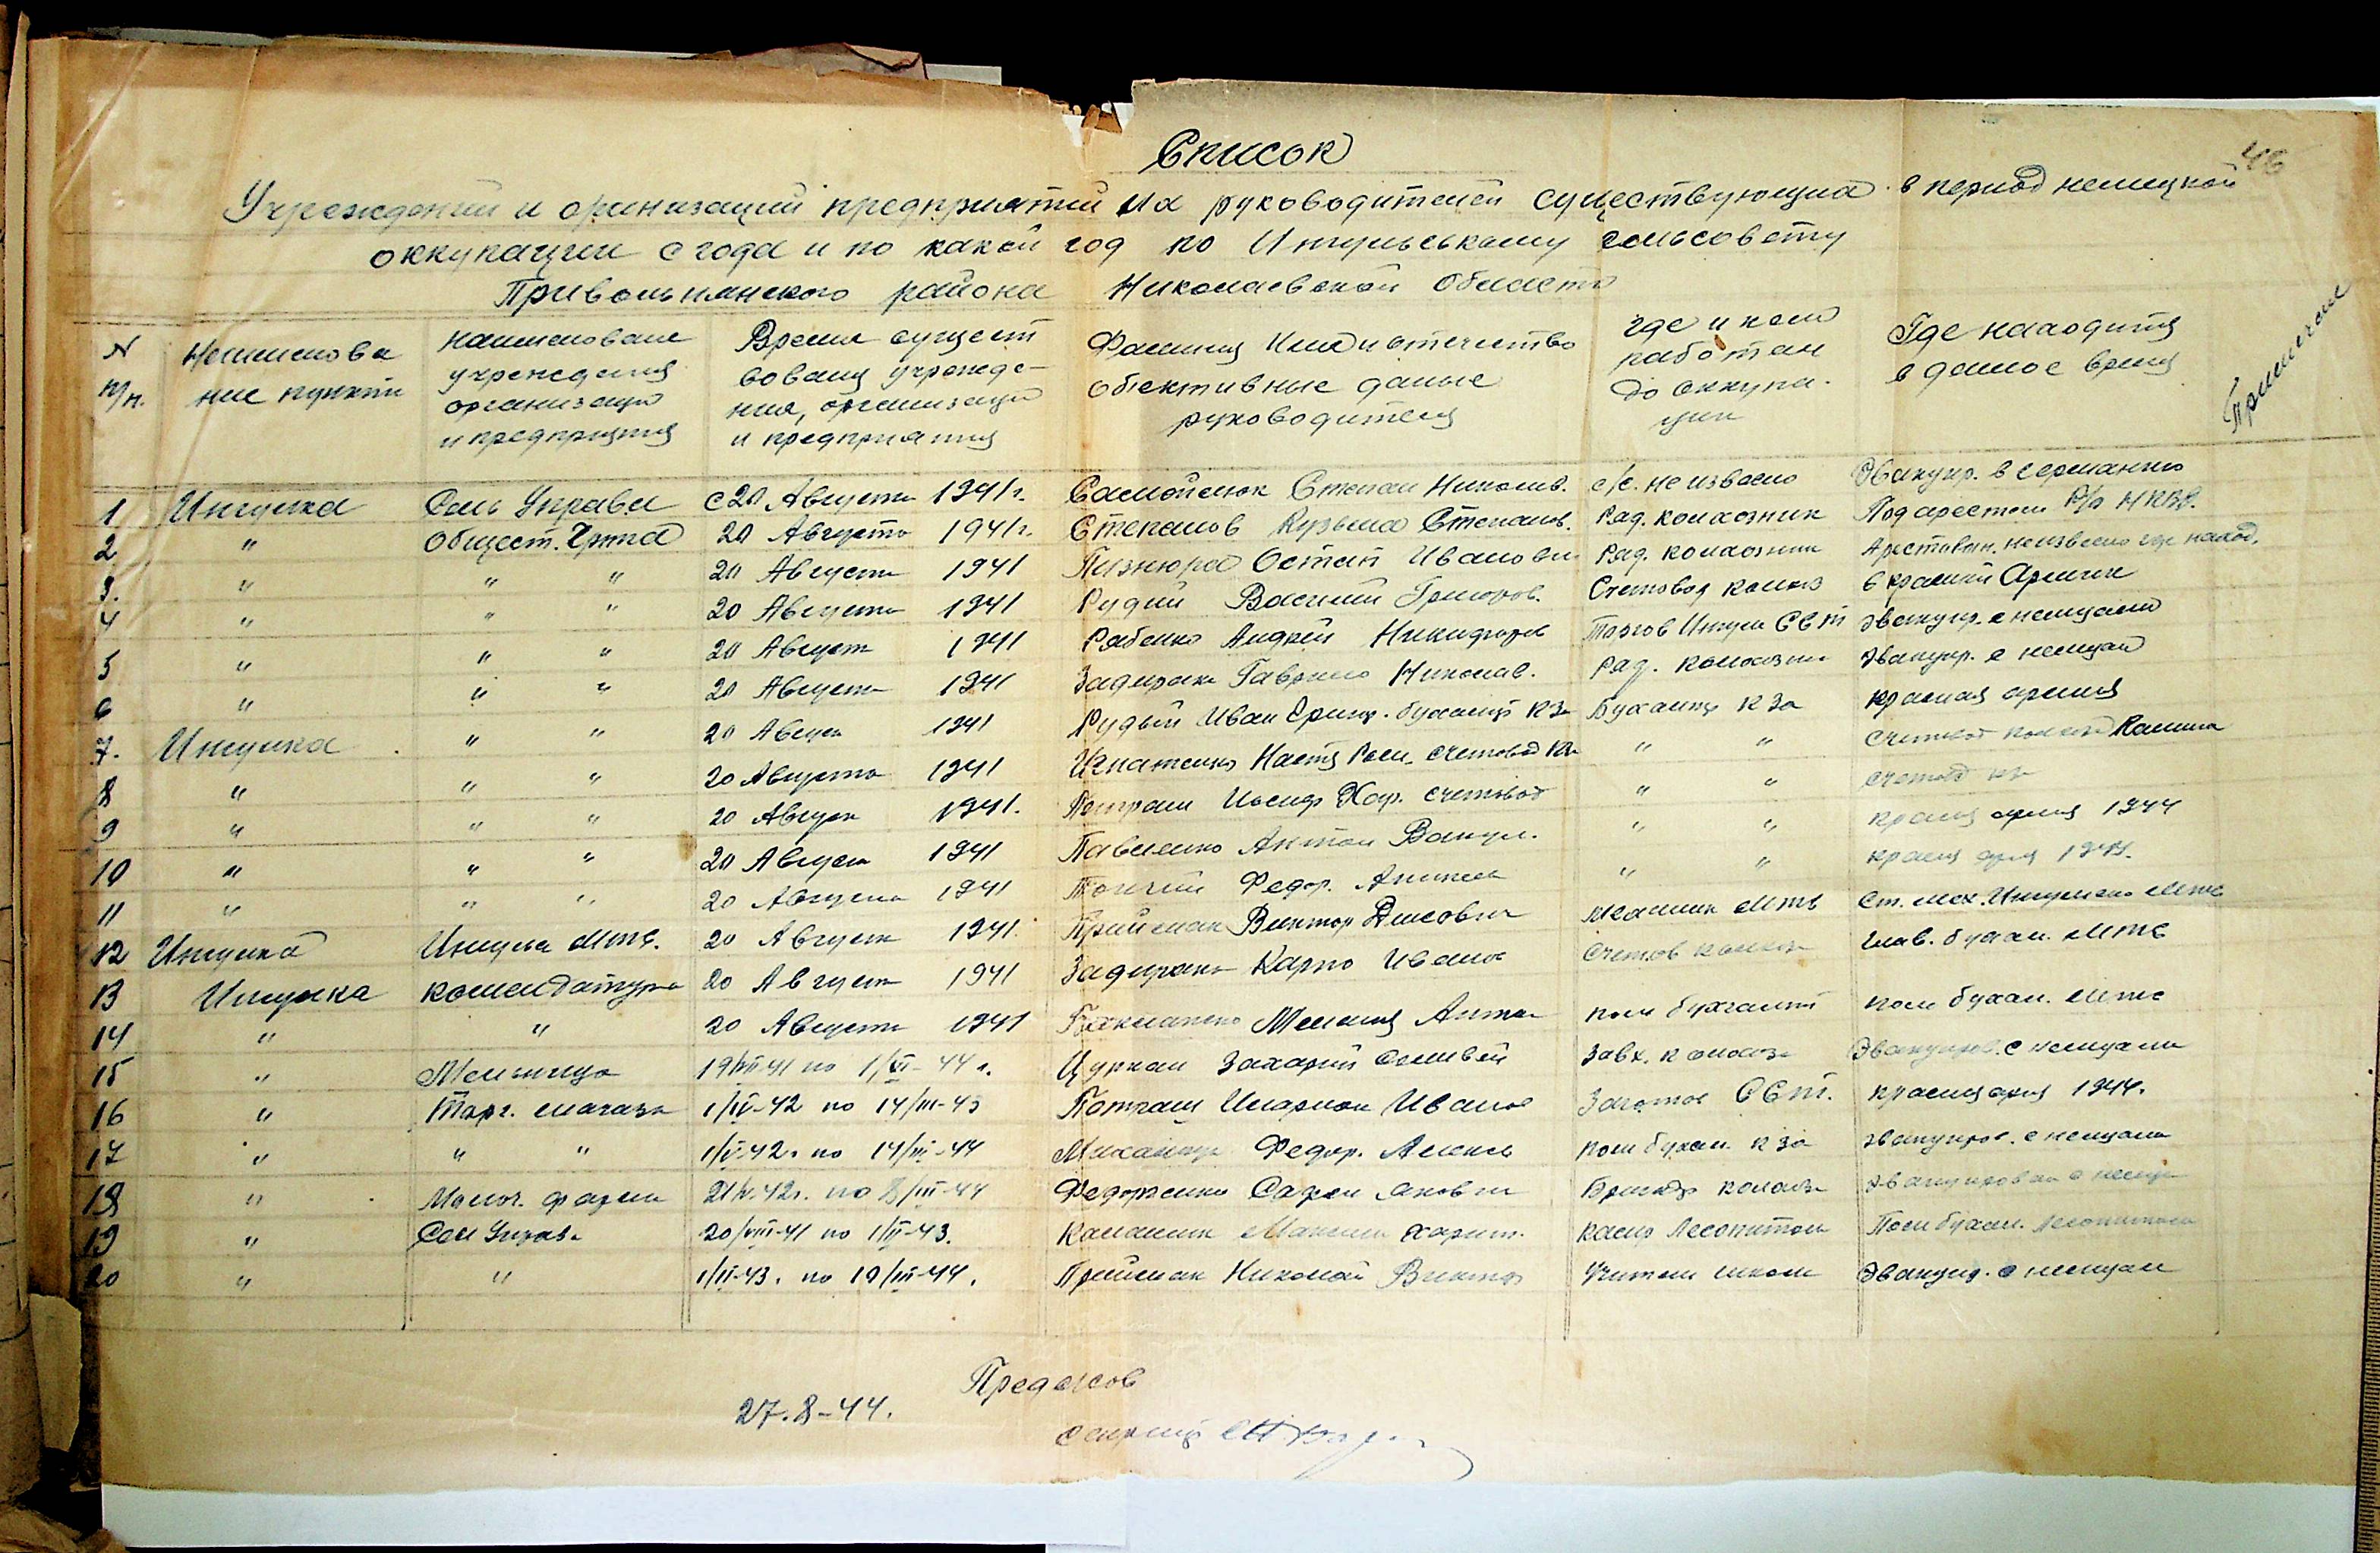 46
Список
Учреждений и организаций предприятий на руководителей существующих в период немецкой
оккупации с года и по какой год по Ингульскому сельсовету
Привольнянского района Николаевской области
N п/п. Наименова ние пункта
наименование учреждения организаций и предприятия
Время сущест вования учрежде- ния, организаций и предприятия
Фамилия Имя и отчество объективные даные руководителя
где и кем работал до оккупа- ции
Где находится в даное время
Примечание
1 Ингулка Сель Управа с 20 Августа 1941 г. Самойлюк Степан Николаев. с/с. не извесно Эвакуир. в германию
2 " Общест. Група 20 Августа 1941 г. Степанов Кузьма Степанов. Ряд. колхозник Под арестом Р/о НКВД.
3. " " " 20 Августа 1941 Пизнюра Остап Иванови Ряд. колхозник Арестован. неизвесно где наход.
4 " " " 20 Августа 1941 Рудий Василий Григоров. Счетовод колхоз в красной Армии
5 " " " 20 Август 1941 Рябенко Андрей Никифоров Торгов Ингул СбТ эвакуир. с немцами
6 " " " 20 Августа 1941 Задирака Гаврило Николав. ряд. колхозник эвакуир. с немцами
7. Ингулка " " 20 Август 1941 Рудый Иван Григор. бухалтер к за Бухалтер к за красная армия
8 " " " 20 Августа 1941 Игнатенко Настя счетовод " " счетовод колхоза Калинина
9 " " " 20 Август 1941. Иосиф Хар. счетовод " " счетовод
10 " " " 20 Август 1941 Павленко Антон Вакул. " " красная армия 1944
11 " " " 20 Августа 1941 Федор. " " красная армия 1944.
12 Ингулка Ингул Мтс. 20 Август 1941 Приймак Виктор Механик Мтс Ст. мех. Ингульско Мтс
13 Ингулка комендатура 20 Август 1941 Задирака Карпо Иванов Счетов колхоза глав. бухал. Мтс
14 " " 20 Августа 1941 Антон пом бухгалт пом бухал. Мтс
15 " Мельница 19/VIII-41 по 44 г. Цуркан Захарий завх. колхоза Эвакуиров. с немцами
16 " Торг. магазин 1/IV-42 по 14/III-43 Иларион Иванов СбТ. красная армия 1944.
17 " " " 1/V-42 г. по 14/III-44 Федор. пом бухал. к за эвакуиров. с немцами
18 " Молоч. ферма 21/V-42 г. по 8/III-44 Федорченко Яковл Бригадир колхоза эвакуирован с немцами
19 " Сел Управа 20/VIII-41 по 1/II-43. Каналин Максим харит. касир Лесопитом Пом бухал. лесопитом
20 " " 1/II-43. по 19/III-44. Приймак Николай Виктор Учитель школы Эвакуир. с немцами
27.8-44.
Предсков
секретар